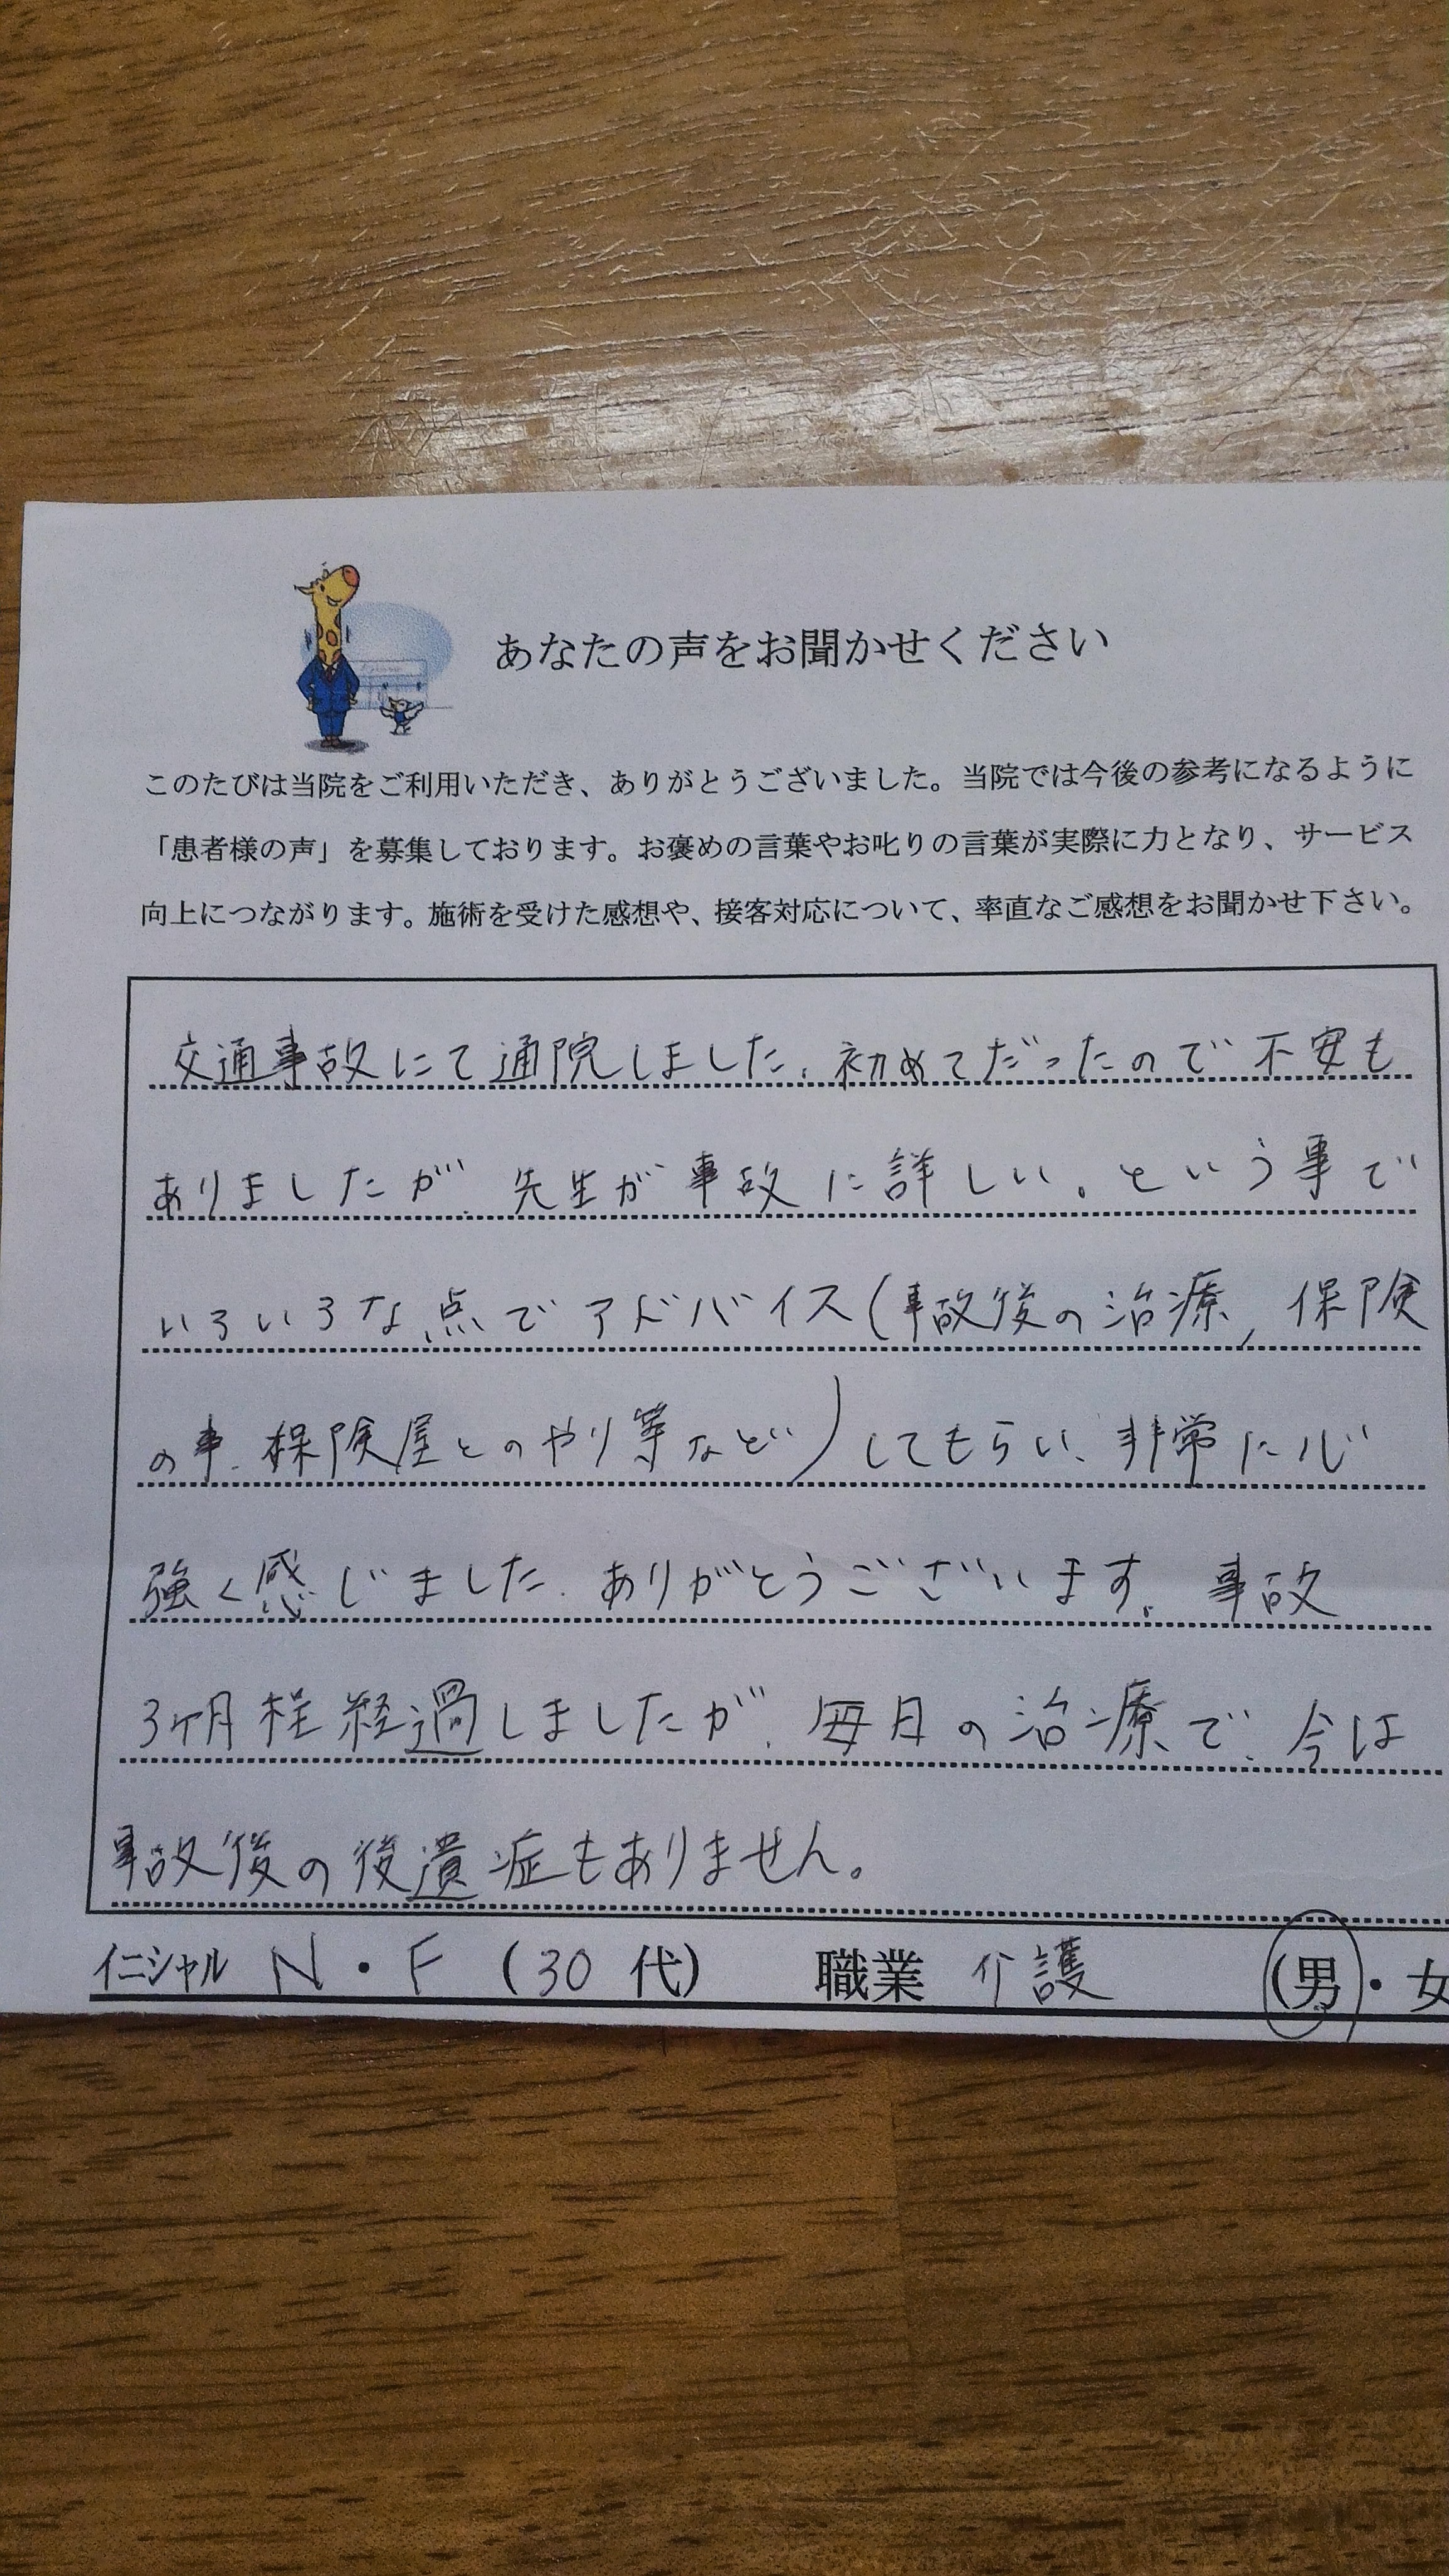 あなたの声をお聞かせください
このたびは当院をご利用いただき、ありがとうございました。当院では今後の参考になるように
「患者様の声」を募集しております。お褒めの言葉やお叱りの言葉が実際に力となり、サービス
向上につながります。施術を受けた感想や、接客対応について、率直なご感想をお聞かせ下さい。
交通事故にて通院しました。初めてだったので不安も
ありましたが、先生が事故に詳しい。という事で
いろいろな点でアドバイス(事故後の治療、保険
の事、保険屋とのやり等など)してもらい、非常に心
強く感じました。ありがとうございます。事故
3ケ月程経過しましたが、毎日の治療で、今は
事故後の後遺症もありません。
イニシャル N・F (30代) 職業 介護 (男・女